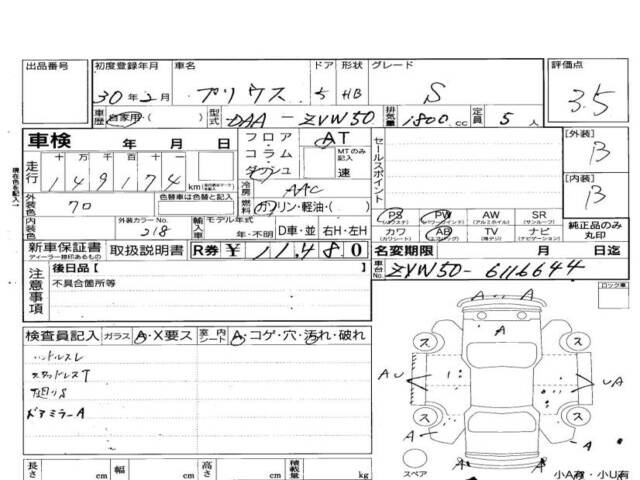 出品番号 初度登録年月 車名 ドア 形状 グレード 評価点
30年2月 プリウス 5 HB S 3.5
車歴 自家用・( ) 型式 DAA-ZVW50 排気量 1800cc 定員 5人
車検 年 月 日 フロア コラム ダッシュ AT MTのみ記入 速 セールスポイント [外装] B
走行 十 万 千 百 十 一
149174 km 冷房 AAC [内装] B
外装色 70 色替車は色替と記入 燃料 ガソリン・軽油・( )
内装色 外装カラーNo. 218 輸入車 モデル年式 年・不明 D車・並 右H・左H
PS (パワステ) PW (パワーウインド) AW (アルミホイル) SR (サンルーフ)
カワ (カワシート) AB (エアバック) TV (格テジ) ナビ (ナビゲーション) 純正品のみ丸印
新車保証書 ディーラー捺印あるもの 取扱説明書 R券 ¥11,480 名変期限 月 日迄
注意事項 後日品[ ] 車台No. ZVW50-6116644
不具合箇所等
ロック車
検査員記入 ガラス A・X要ス 室内シート A・コゲ・穴・汚れ・破れ
ハンドルスレ
スタッドレスT
下回りS
ドアミラーA
A A
A
ス ス
AU UA
ス ス
A A
A A
スペア
小A有・小U有
長さ cm 幅 cm 高さ cm 積載量 kg
現在色を記入→